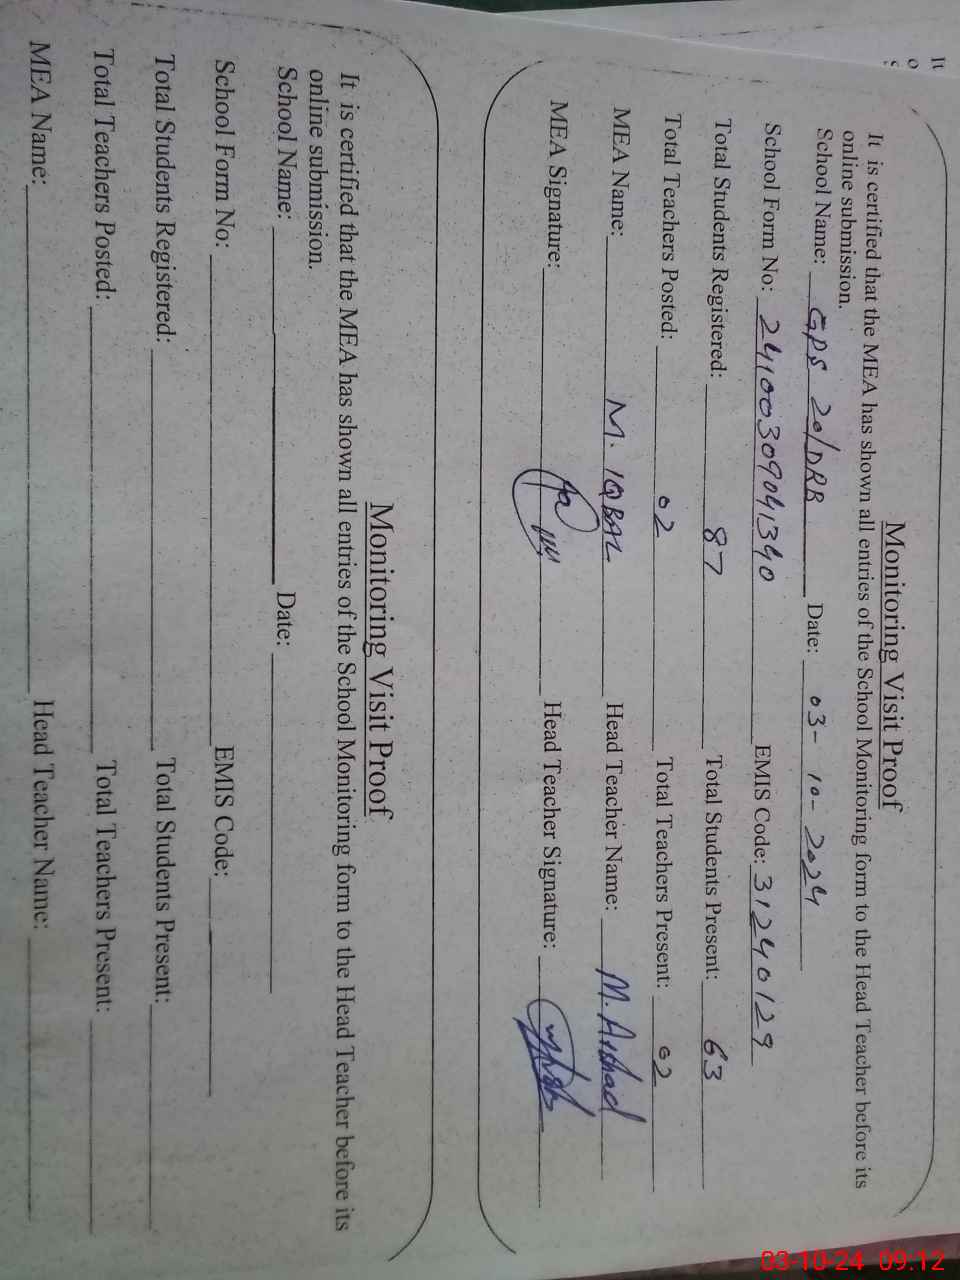 Monitoring Visit Proof
It is certified that the MEA has shown all entries of the School Monitoring form to the Head Teacher before its
online submission.
School Name: GPS 20/DRB Date: 03-10-2024
School Form No: 24100309041340 EMIS Code: 31240129
Total Students Registered: 87 Total Students Present: 63
Total Teachers Posted: 02 Total Teachers Present: 02
MEA Name: M. IQBAL Head Teacher Name: M. Arshad
MEA Signature: Head Teacher Signature:
Monitoring Visit Proof
It is certified that the MEA has shown all entries of the School Monitoring form to the Head Teacher before its
online submission.
School Name: Date:
School Form No: EMIS Code:
Total Students Registered: Total Students Present:
Total Teachers Posted: Total Teachers Present:
MEA Name: Head Teacher Name:
03-10-24 09:12